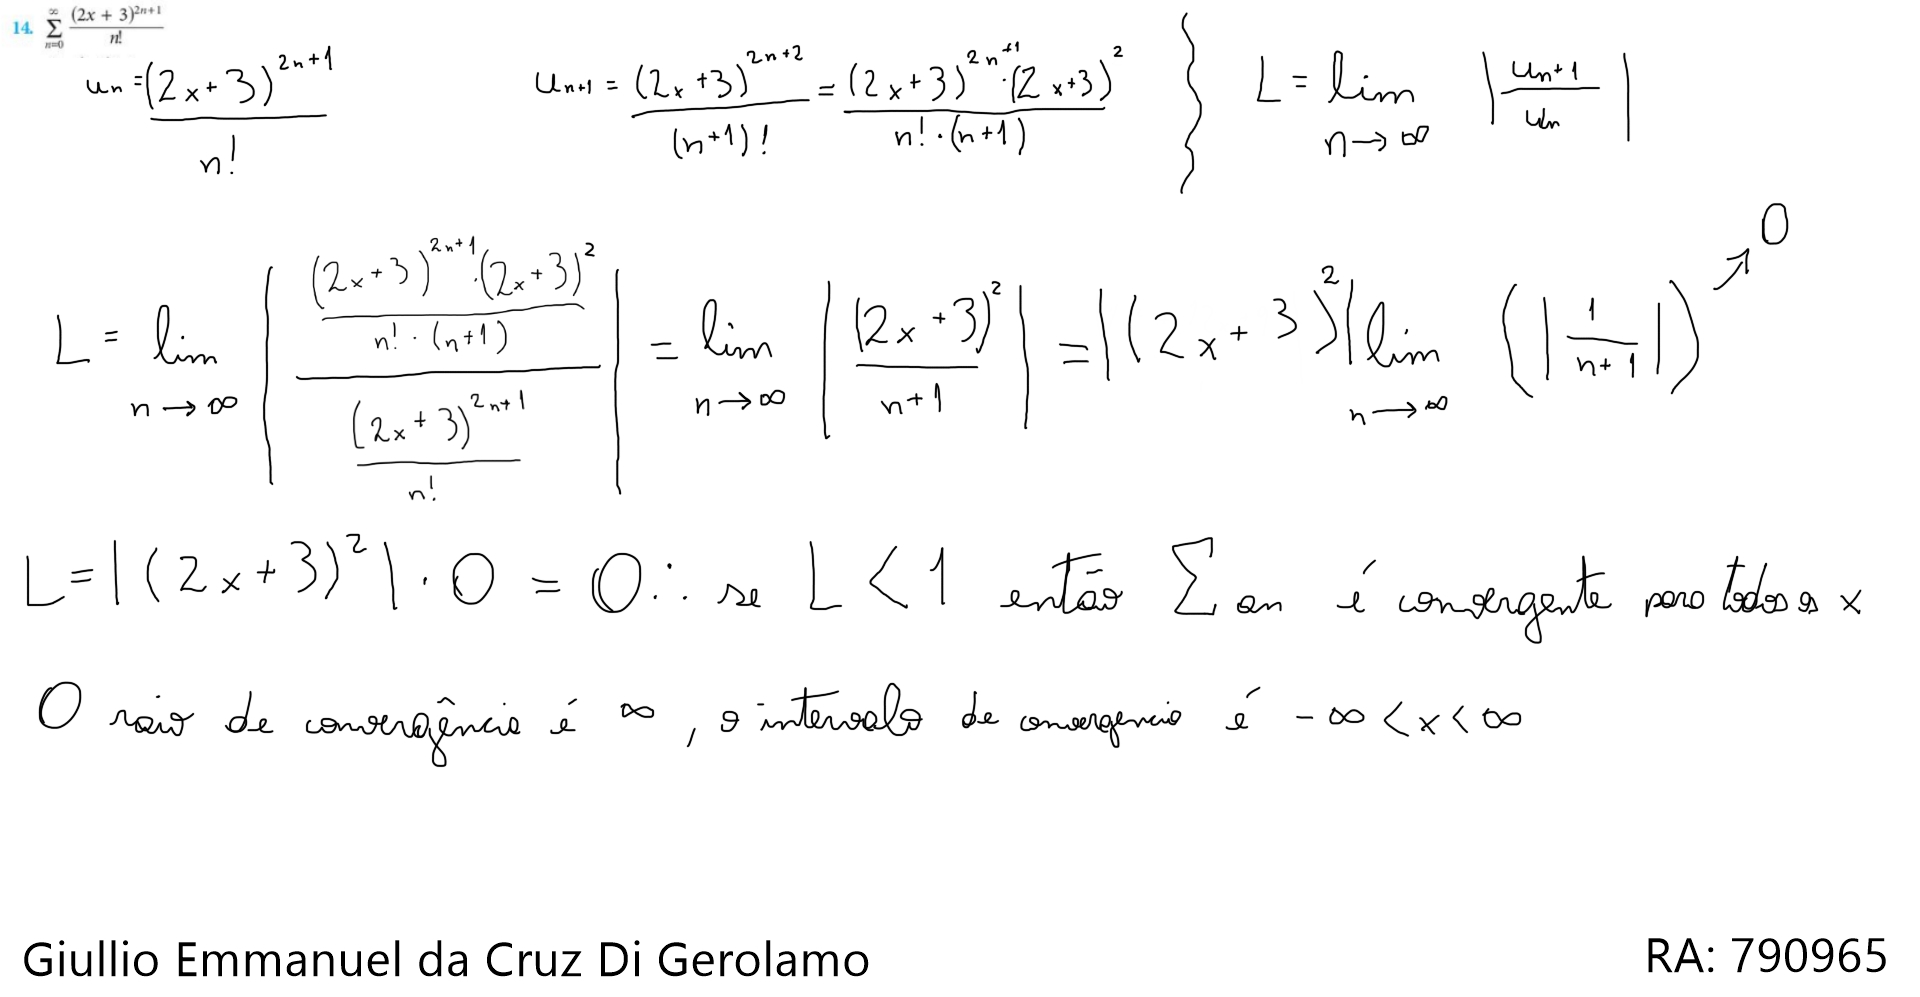 14. ∑_{n=0}^{∞} (2x + 3)^{2n+1} / n!
un = (2x+3)^{2n+1} / n!   u_{n+1} = (2x+3)^{2n+2} / (n+1)! = (2x+3)^{2n+1}·(2x+3)^2 / n!·(n+1)   L = lim_{n→∞} |u_{n+1} / un|
L = lim_{n→∞} | ((2x+3)^{2n+1}·(2x+3)^2 / n!·(n+1)) / ((2x+3)^{2n+1} / n!) | = lim_{n→∞} | (2x+3)^2 / n+1 | = |(2x+3)^2| lim_{n→∞} (|1 / n+1|) ↗ 0
L = |(2x+3)^2| · 0 = 0 ∴ se L < 1 então ∑ an é convergente para todos os x
O raio de convergência é ∞, o intervalo de convergencia é -∞ < x < ∞
Giullio Emmanuel da Cruz Di Gerolamo   RA: 790965